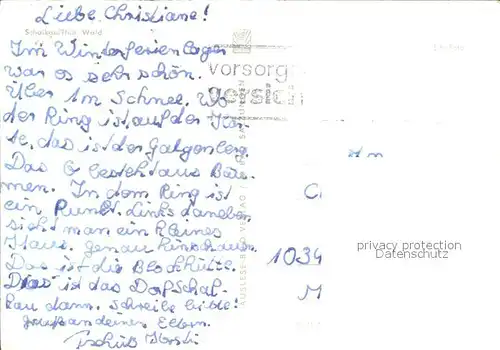 Liebe Christiane!
Schalkau/Thür. Wald
Im Winterferienlager
war es sehr schön.
Über 1m Schnee. Wo
der Ring ist, auf der Kar-
te, das ist der Galgenberg.
Das G besteht aus Bäu-
men. In dem Ring ist
ein Punkt. Links daneben
sieht man ein kleines
Haus. genau hinschauen.
Das ist die Blockhütte.
Das ist das Dorf Schal-
kau dann. Schreibe bitte!
grüß an deinen Eltern.
Tschüß Kersti
vorsorg
AUSLESE-BILD-VERLAG
An
1034
M
privacy protection
Datenschutz